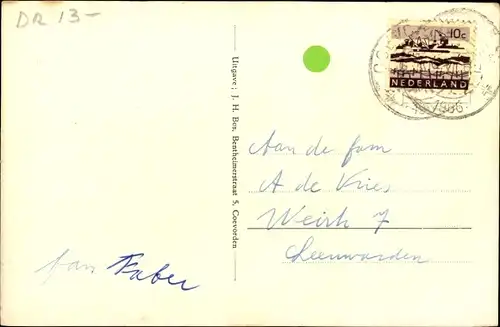 DR 13-
10c
NEDERLAND
1966
Uitgave: J. H. Ben, Bentheimerstraat 5, Coevorden
Aan de fam
A de Vries
Weirk 7
Leeuwarden
fam Faber